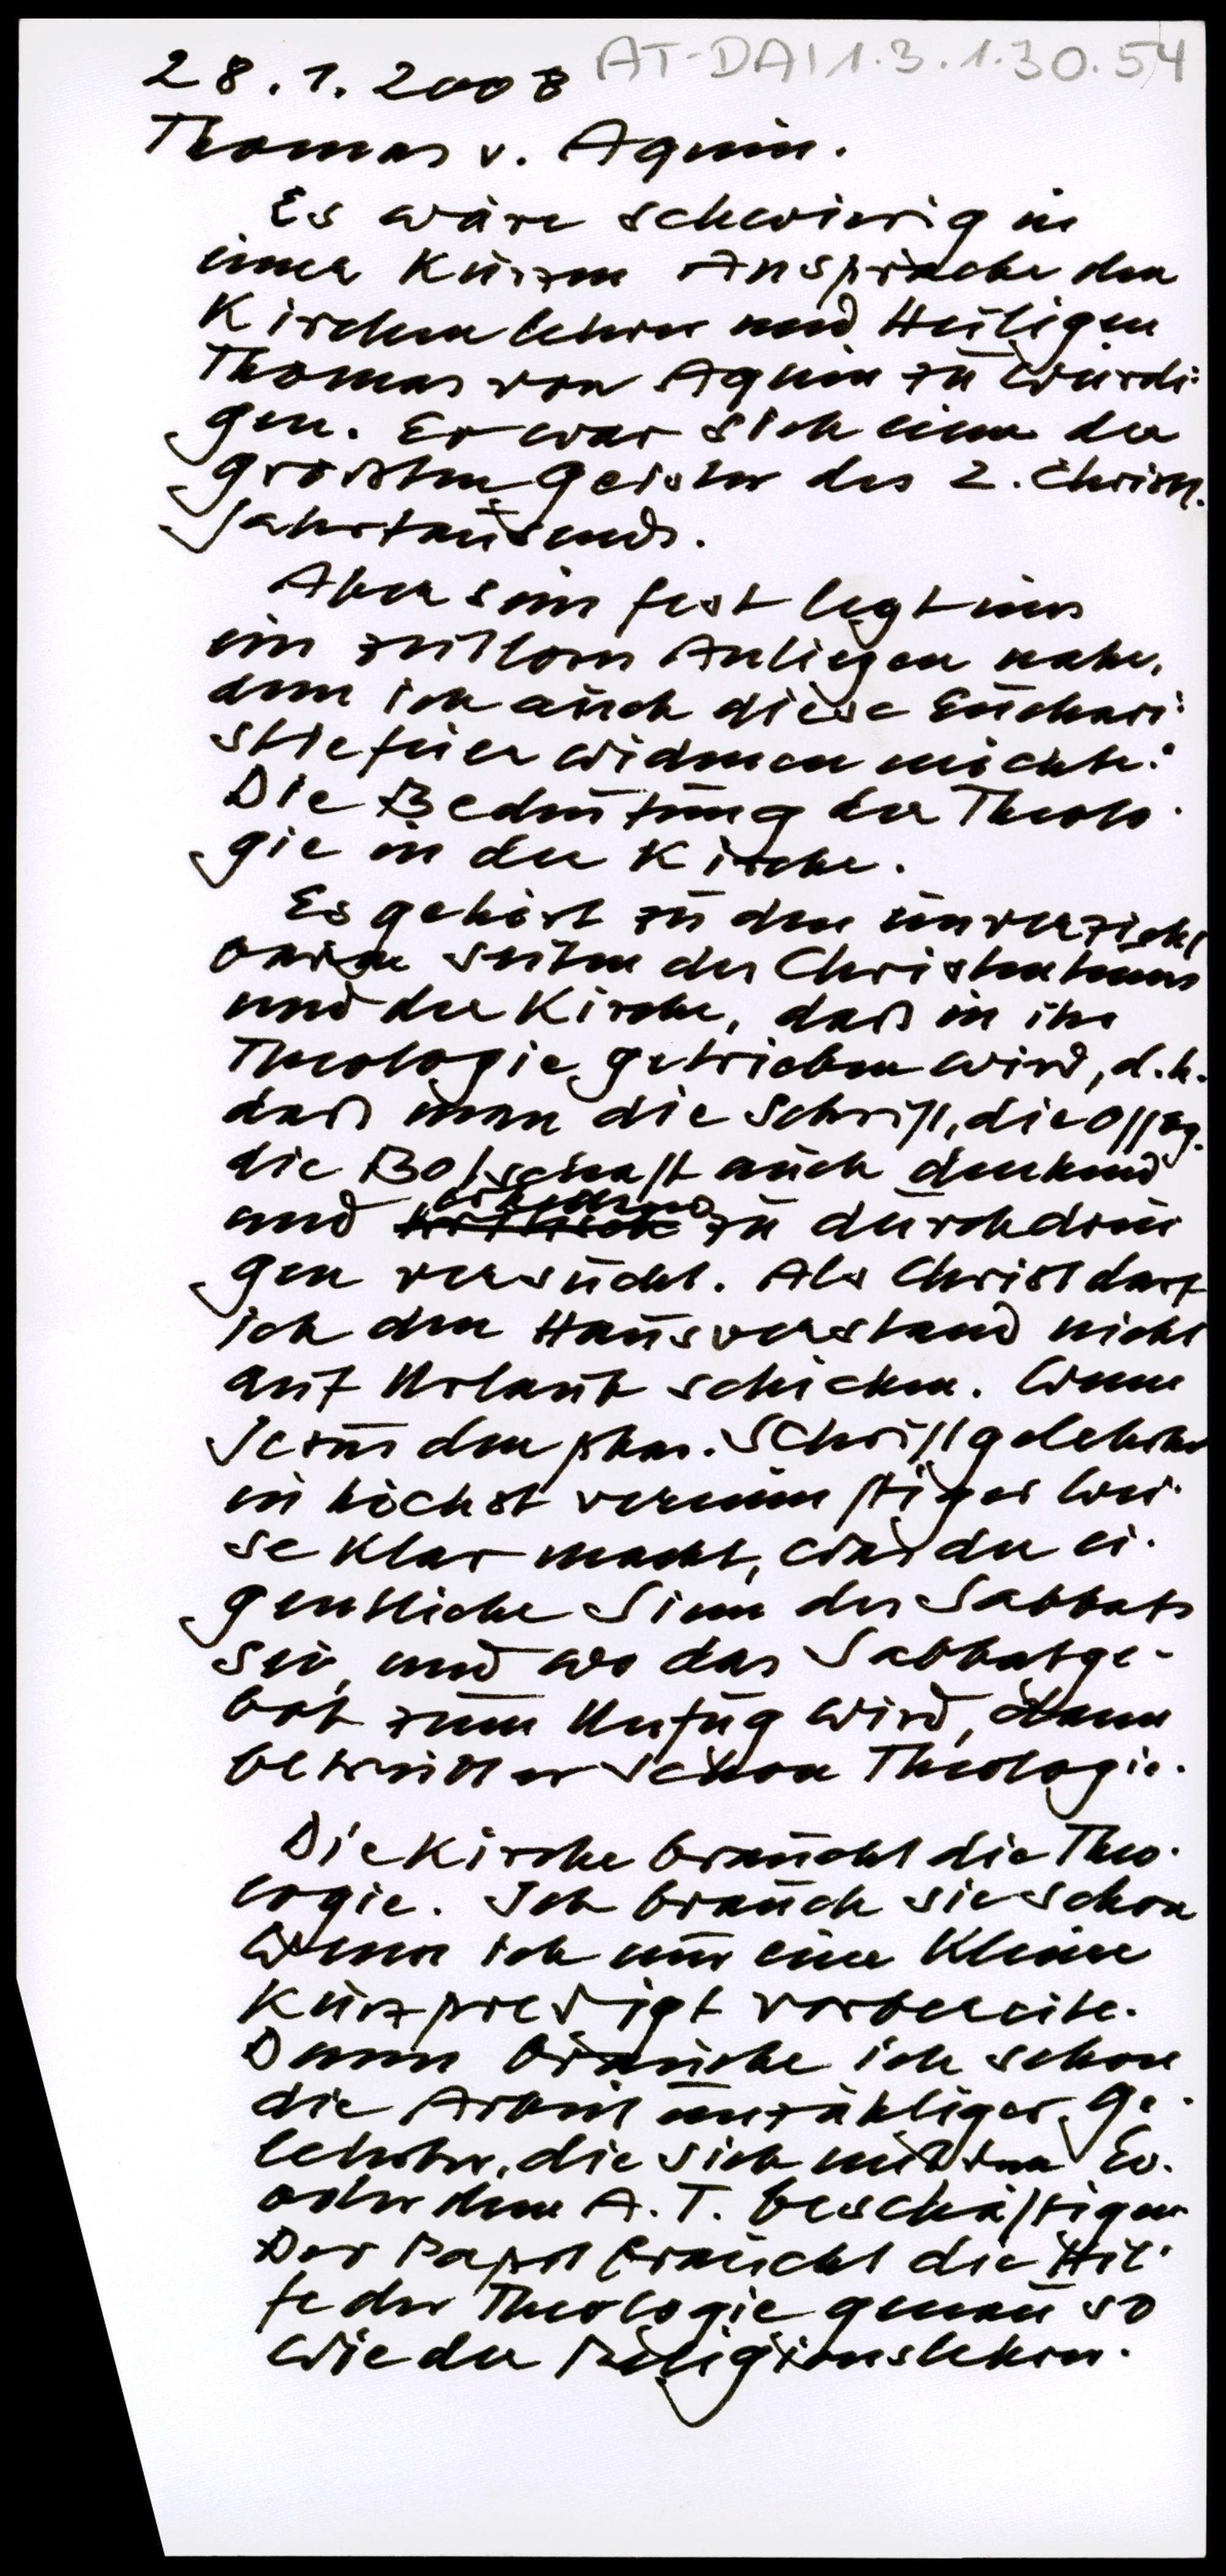 AT-DAI 1.3.1.30.54
28.1.2008
Thomas v. Aquin.
Es wäre schwierig in
einer kurzen Ansprache den
Kirchenlehrer und Heiligen
Thomas von Aquin zu würdi-
gen. Er war sich einer der
größten Geister des 2. christl.
Jahrtausends.
Aber sein Fest legt uns
ein zeitloses Anliegen nahe,
dem ich auch diese Euchari-
stiefeier widmen möchte:
Die Bedeutung der Theolo-
gie in der Kirche.
Es gehört zu den unverzicht
baren Seiten des Christentums
und der Kirche, daß in ihr
Theologie getrieben wird, d.h.
daß man die Schrift, die Offbg.
die Botschaft auch denkend
und zu durchdrin
gen versucht. Als Christ darf
ich den Hausverstand nicht
auf Urlaub schicken. Wenn
Jesus den phar. Schriftgelehrten
in höchst vernünftiger Wei-
se klar macht, was der ei-
gentliche Sinn des Sabbats
sei, und wo das Sabbatge-
bot zum Unfug wird, dann
betreibt er schon Theologie.
Die Kirche braucht die Theo-
logie. Ich brauch sie schon
wenn ich nur eine kleine
Kurzpredigt vorbereite.
Dann brauche ich schon
die Arbeit unzähliger Ge-
lehrter, die sich mit dem Ev.
oder dem A.T. beschäftigen
Der Papst braucht die Hil-
fe der Theologie genau so
wie der Religionslehrer.